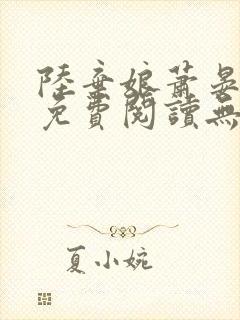 陸棄娘蕭晏
免費閱讀無
夏小婉